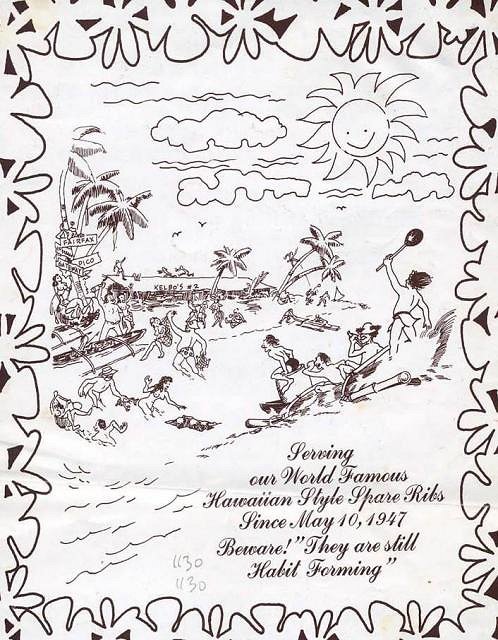 FAIRFAX
PICO
KELBO'S #2
Serving
our World Famous
Hawaiian Style Spare Ribs
Since May 10, 1947
Beware! "They are still
Habit Forming"
1130
1130